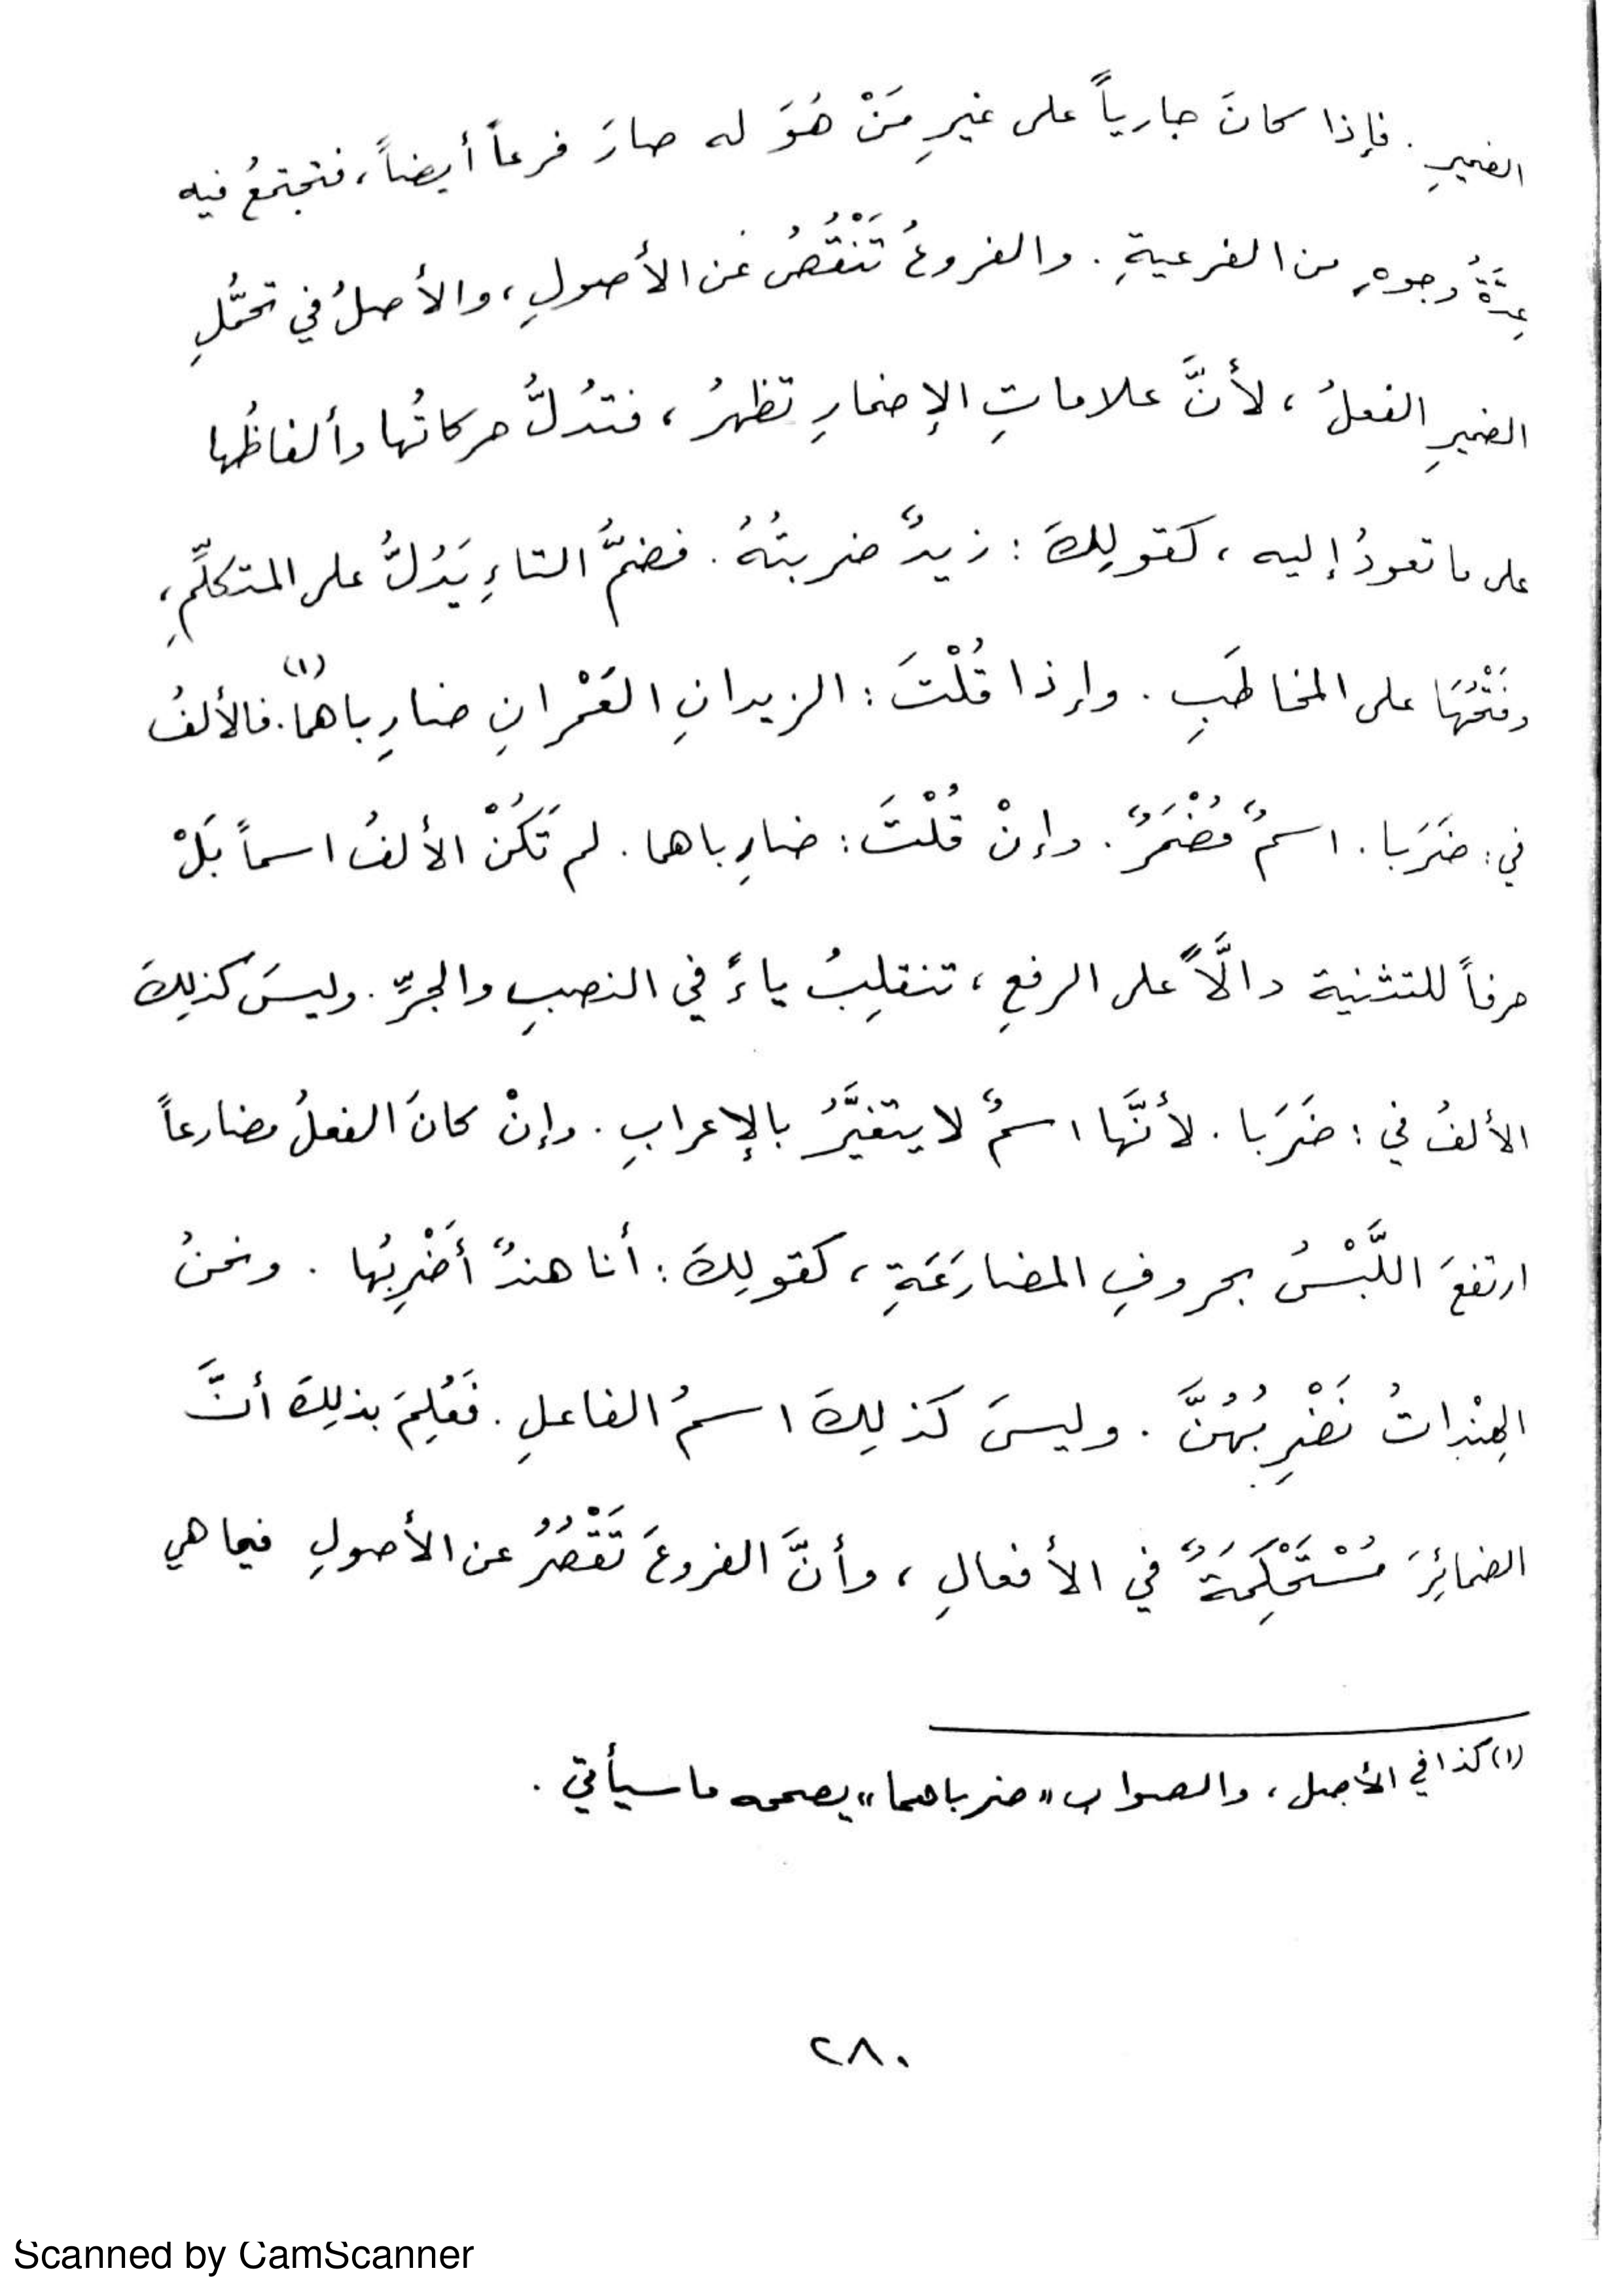 الضميرِ . فإذا كانَ جارياً على غيرِ مَنْ هُوَ له صارَ فرعاً أيضاً، فتجتمعُ فيه
عِدَّةُ وجوهٍ من الفرعيةِ . والفروعُ تَنْقُصُ عَن الأصولِ، والأصلُ في تحمُّلِ
الضميرِ الفعلُ، لأنَّ علاماتِ الإضمارِ تظهرُ، فتدُلُّ حركاتُها وألفاظُها
على ما تعودُ إليه، كقولِكَ : زيدٌ ضربتُهُ . فضمُّ التاءِ يَدُلُّ على المتكلِّمِ،
وفَتْحُهَا على المخاطَبِ . وإذا قُلْتَ : الزيدانِ العَمْرانِ ضارِباهُما(١). فالألفُ
في : ضَرَبَا . اسمٌ مُضْمَرٌ . وإنْ قُلْتَ : ضارِباهما . لم تَكُنْ الألفُ اسماً بَلْ
حرفاً للتثنية دالَّاً على الرفعِ، تنقلِبُ ياءً في النصبِ والجرِّ . وليسَ كذلِكَ
الألفُ في : ضَرَبَا . لأنَّها اسمٌ لا يتغيَّرُ بالإعرابِ . وإنْ كانَ الفعلُ مضارعاً
ارتفعَ اللَّبْسُ بحروفِ المضارَعَةِ، كقولِكَ : أنا هندٌ أَضْرِبُها . ونحنُ
الهِنْداتُ نَضْرِبُهُنَّ . وليسَ كذلِكَ اسمُ الفاعلِ . فَعُلِمَ بذلِكَ أنَّ
الضمائِرَ مُسْتَحْكِمَةٌ في الأفعالِ، وأنَّ الفروعَ تَقْصُرُ عن الأصولِ فيما هي
(١) كذا في الأصل، والصواب «ضرباهما» يصححه ما سيأتي .
٢٨٠
Scanned by CamScanner